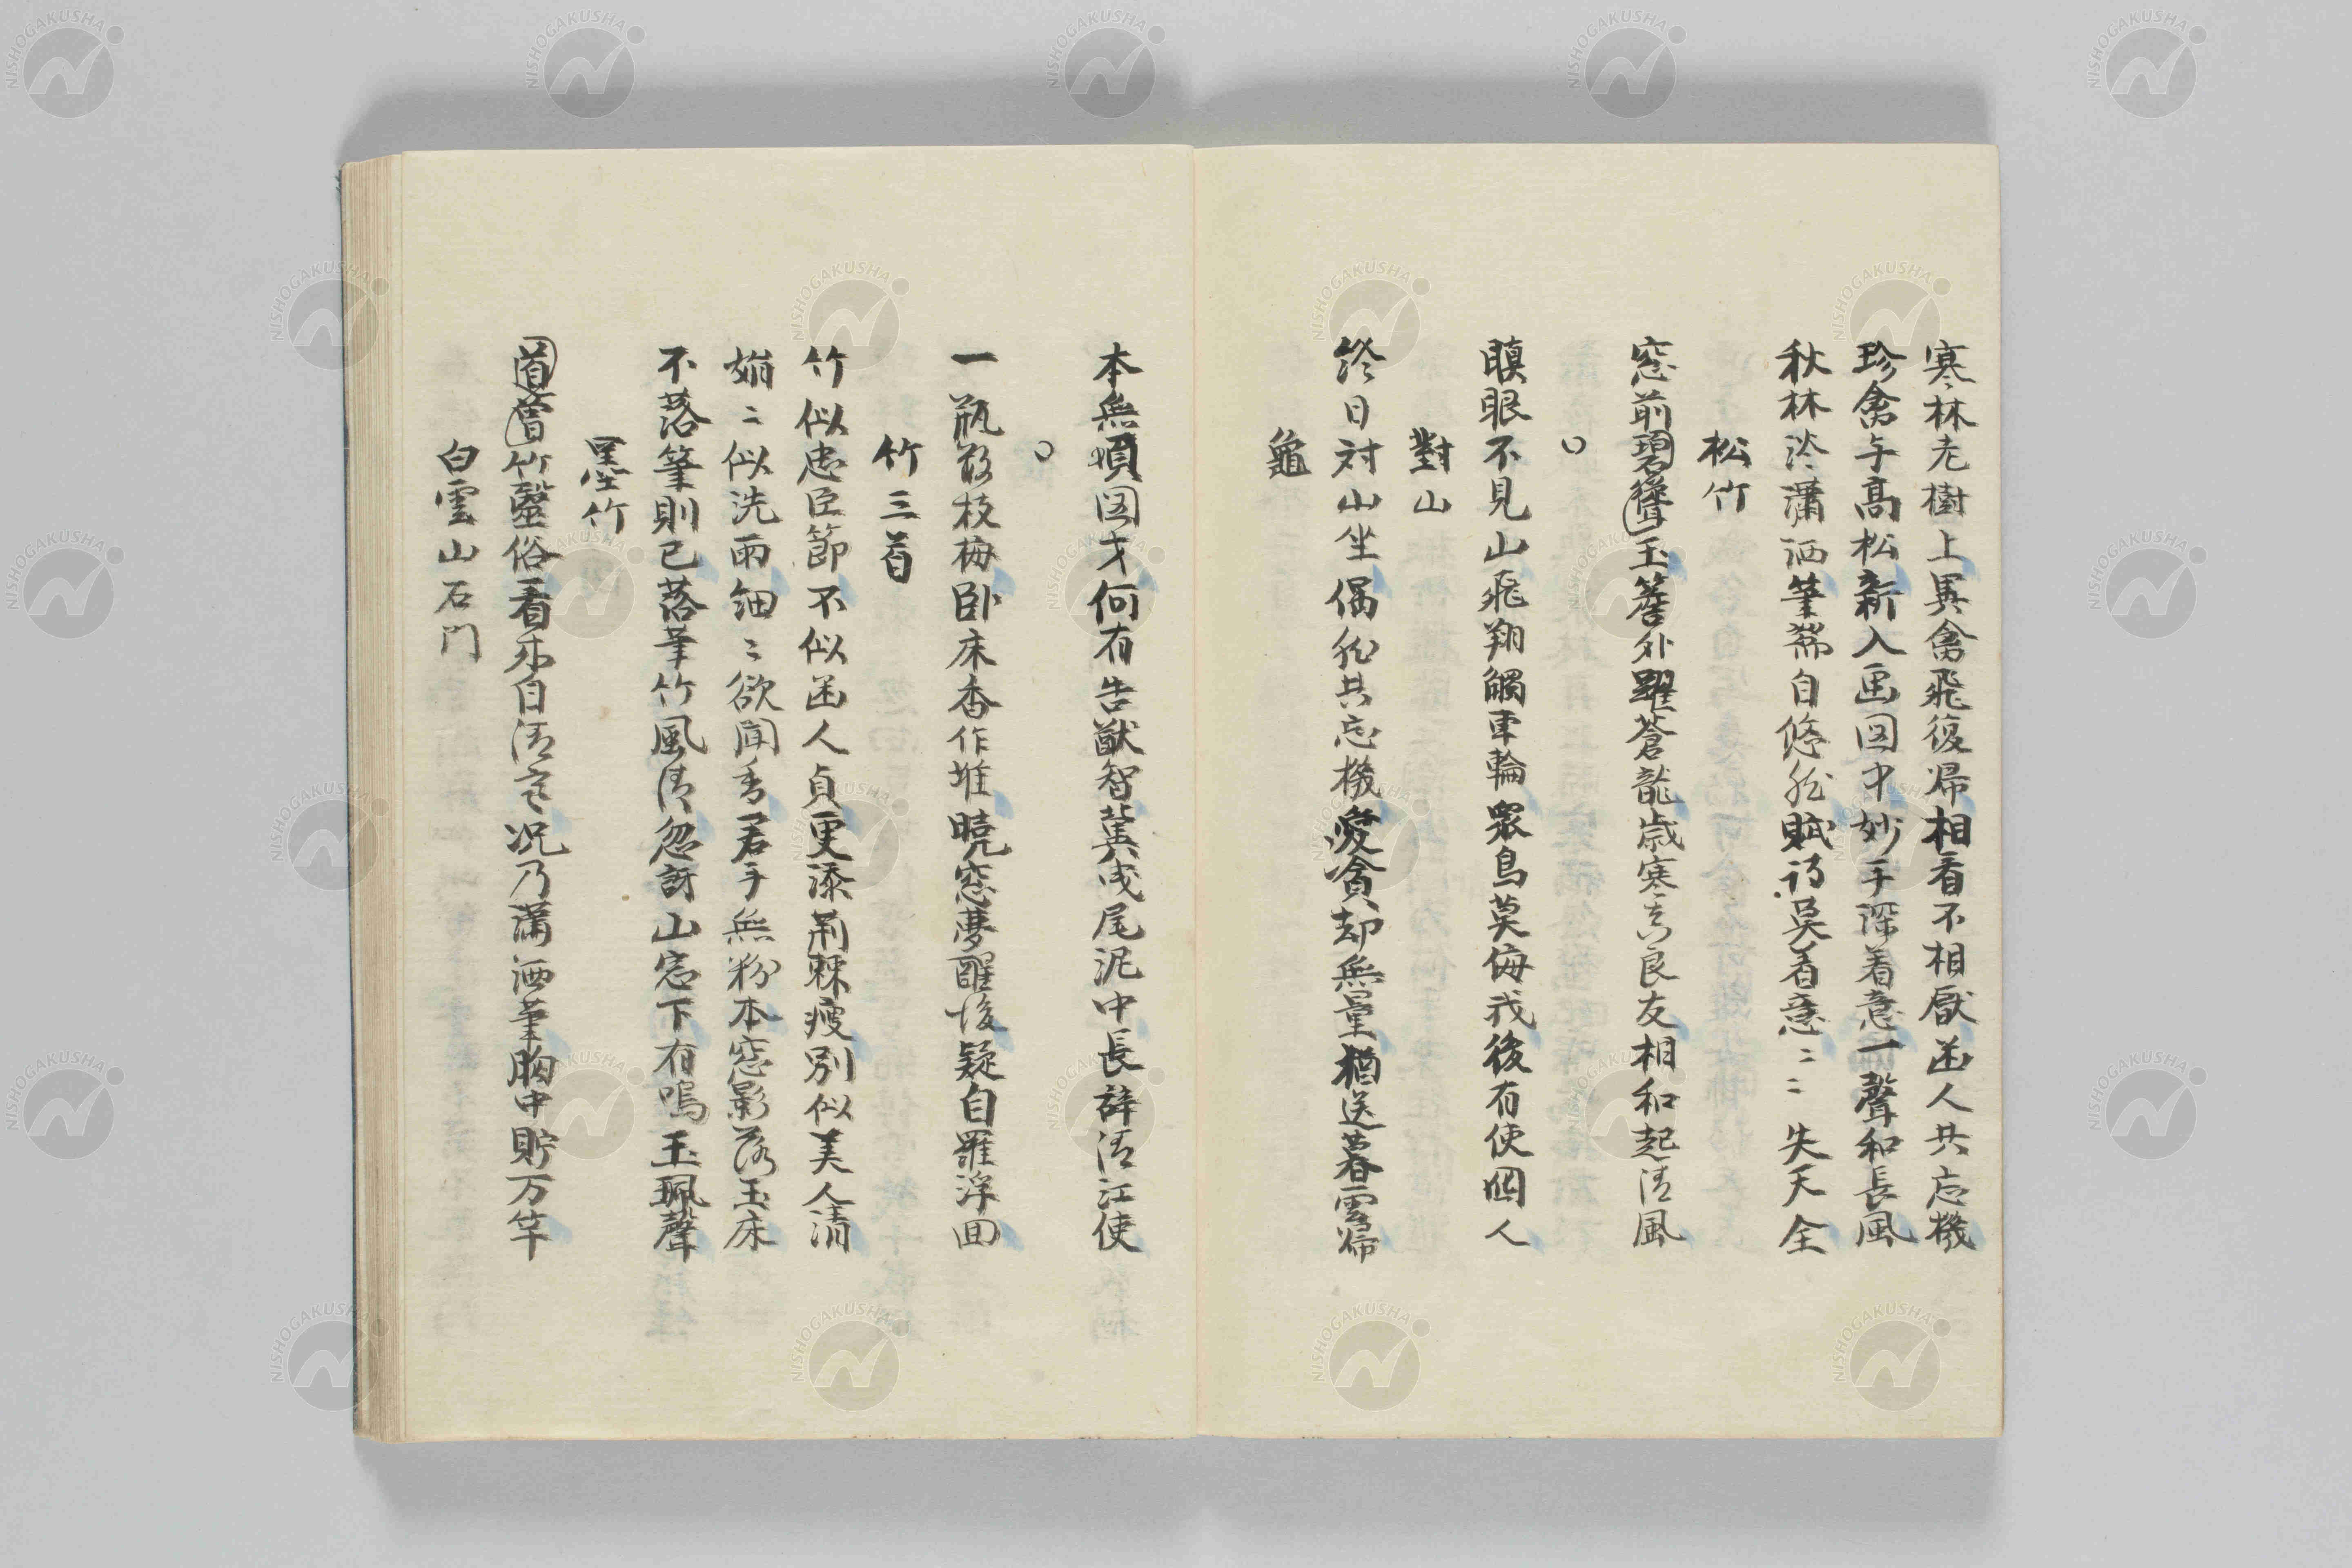 寒林老樹上異禽飛復帰相看不相厭凾人共忘機
珍禽与高松新入画図中妙手深着意一聲和長風
秋林淡瀟洒筆端自悠然賦詩莫着意〻〻失天全
松竹
窓前碧聳玉簷外躍蒼龍歳寒真良友相和起清風
○
瞑眼不見山飛翔觸車輪衆鳥莫侮我後有使囮人
對山
終日対山坐偶然共忘機愛貪却無量猶送暮雲帰
龜
本無順図才何有告猷智冀成尾泥中長辞清江使
○
一瓶数枝梅卧床香作堆暁窓夢醒後疑自羅浮回
竹三首
竹似忠臣節不似凾人貞更添荊棘瘦別似美人清
娟〻似洗雨細〻欲聞香君手無粉本窓影落玉床
不落筆則已落筆竹風清忽訝山窓下有鳴玉珮聲
墨竹
道曽竹醫俗看来自清寒况乃瀟洒筆胸中貯万竿
白雲山石門